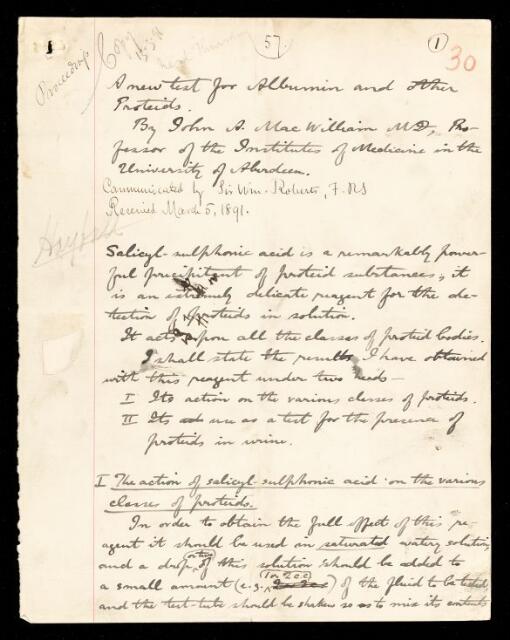 57
1
30
Proceedings
Copy
A new test for Albumin and other
Proteids.
By John A. MacWilliam M.D., Pro-
fessor of the Institutes of Medicine in the
University of Aberdeen.
Communicated by Sir Wm. Roberts, F.R.S
Received March 5, 1891.
Salicyl-sulphonic acid is a remarkably power-
ful precipitant of proteid substances; it
is an extremely delicate reagent for the de-
tection of proteids in solution.
It acts upon all the classes of proteid bodies.
I shall state the results I have obtained
with this reagent under two heads —
I Its action on the various classes of proteids.
II Its use as a test for the presence of
proteids in urine.
I The action of salicyl-sulphonic acid on the various
classes of proteids.
In order to obtain the full effect of this re-
agent it should be used in saturated watery solution
and a drop or two of this solution should be added to
a small amount (e.g. 1 or 2 cc) of the fluid to be tested
and the test-tube should be shaken so as to mix its contents